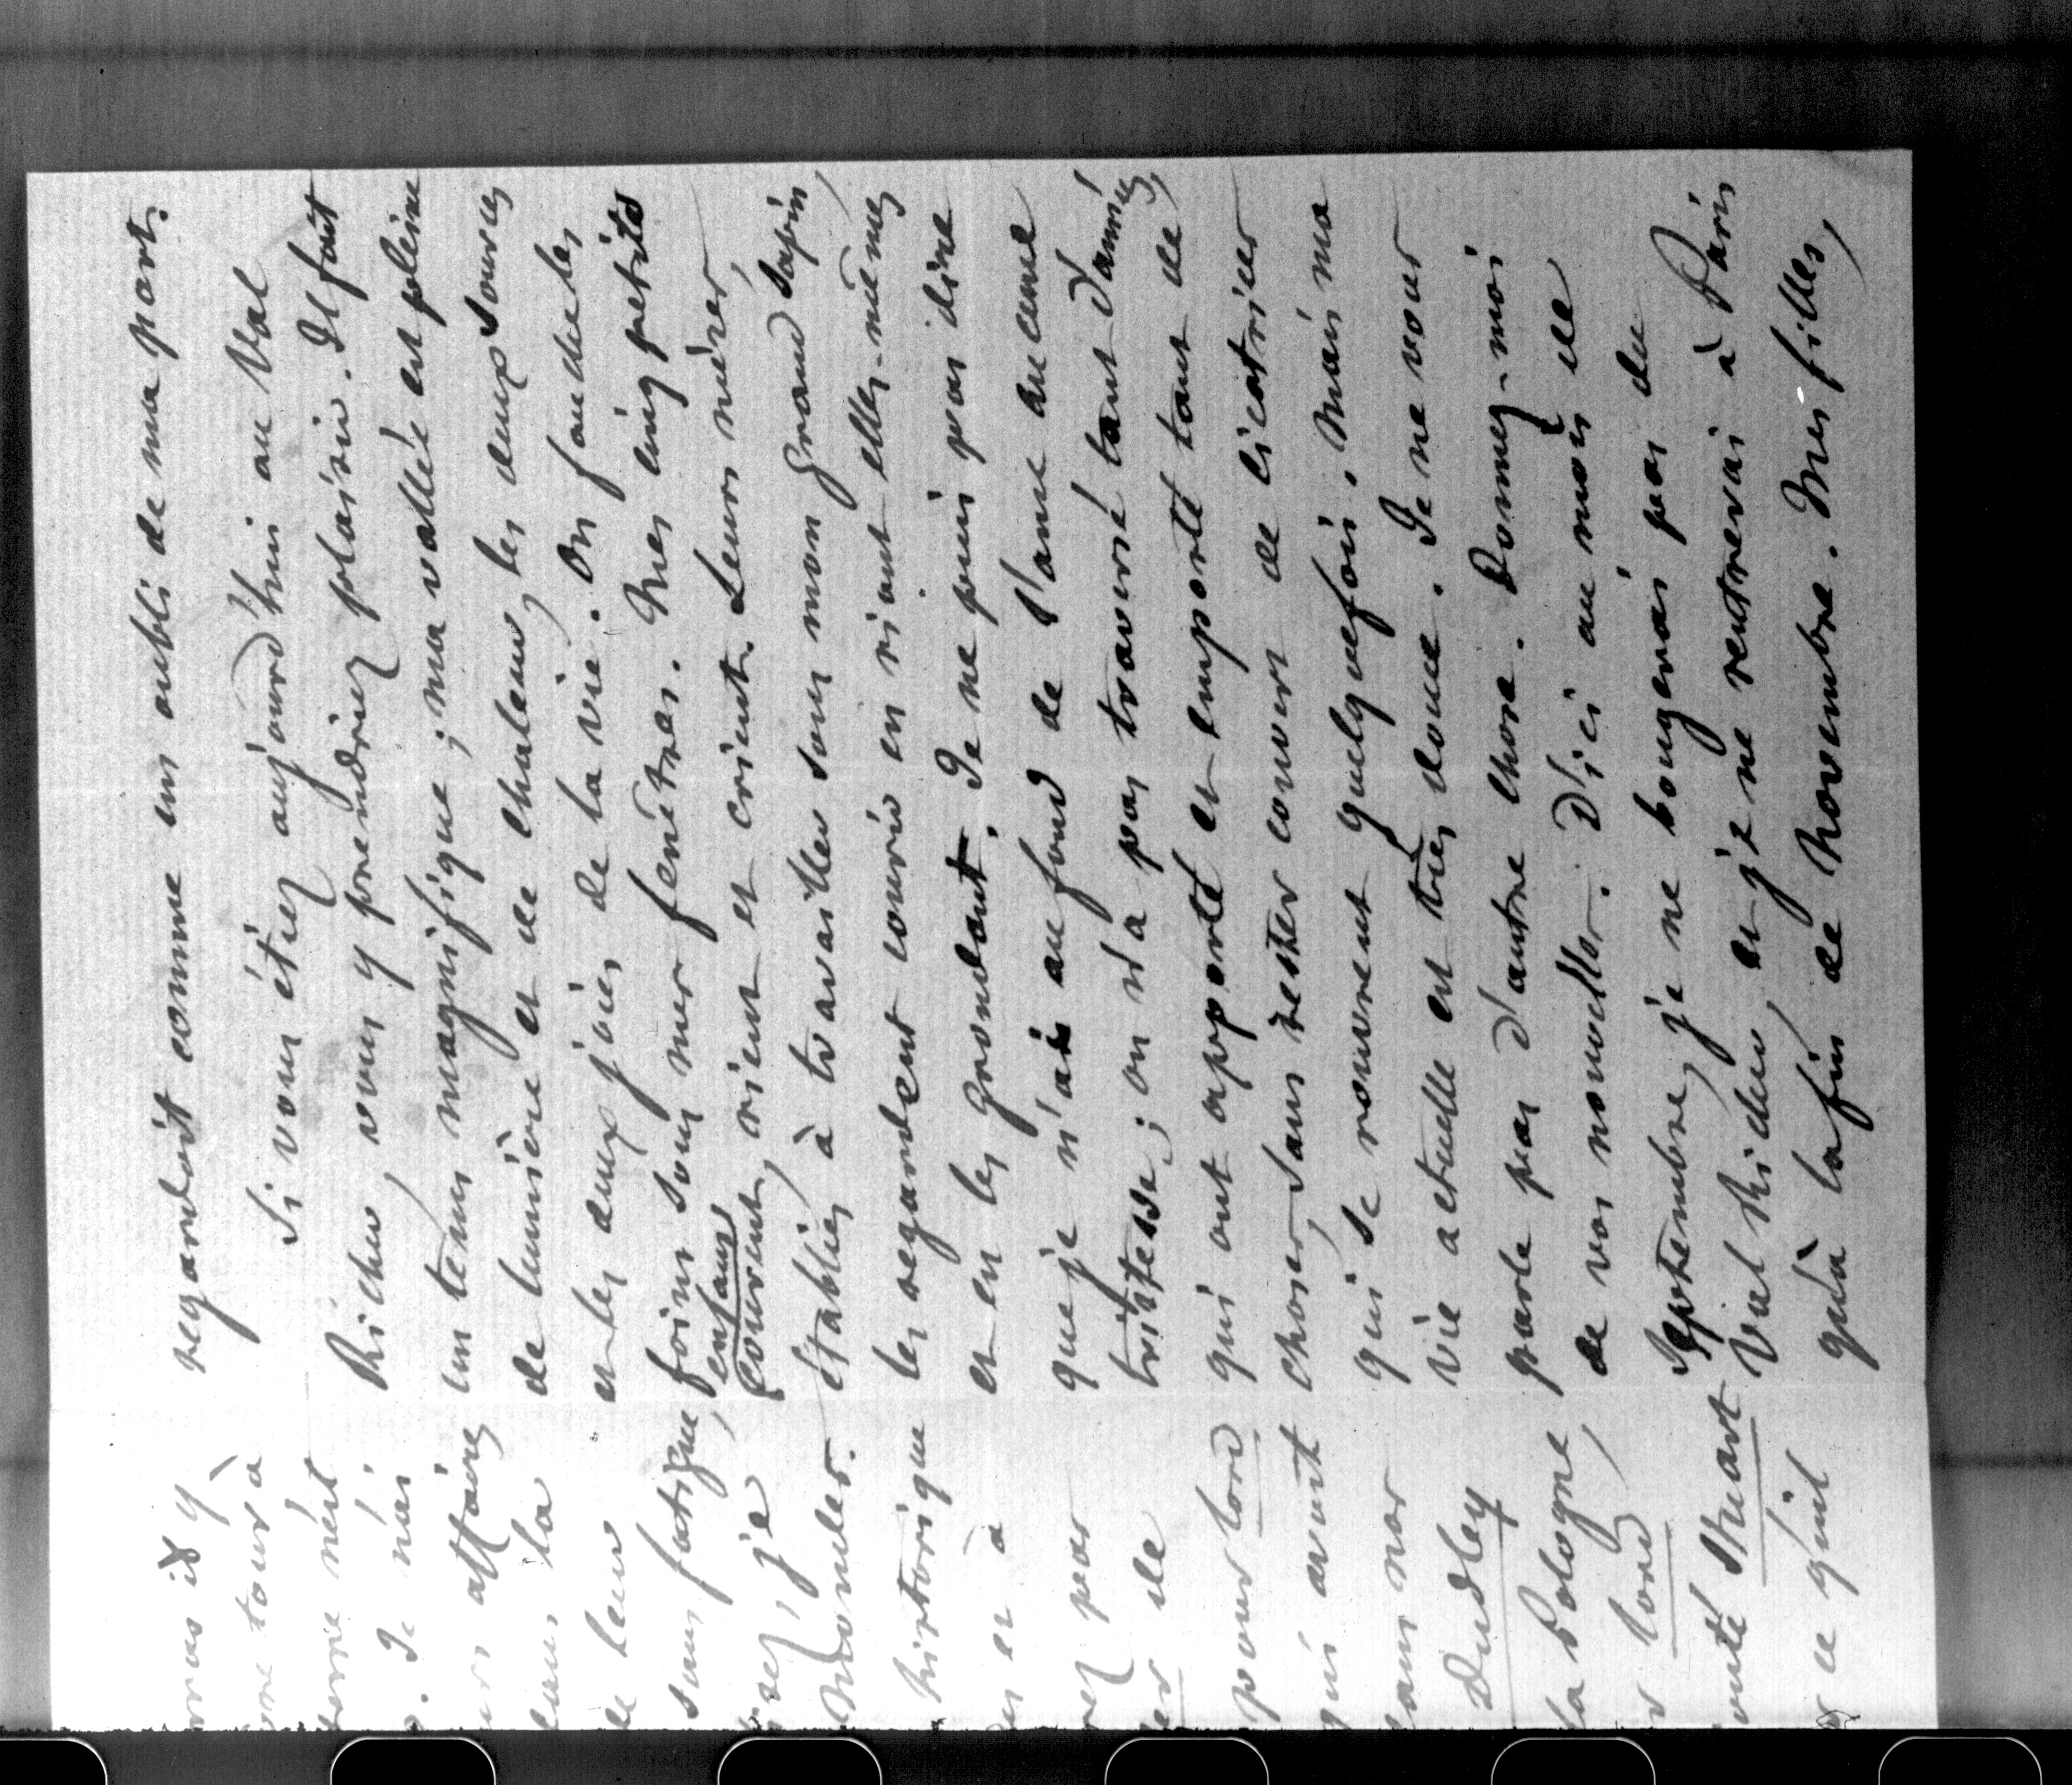 mais il y
une tour à
terme n'est
. Je n'ai
attaires
la
de leur
sans fatigue
je
Mondes.
historique
et à
par
de
pour lord
qui avait
dans nos
Dudley
la Pologne,
lord
Stuart
ce qu'il
regardoit comme un oubli de ma part.
Si vous étiez aujourd'hui au Val
Richer, vous y prendriez plaisir. Il fait
un tems magnifique ; ma vallée est pleine
de lumière et de chaleur, les deux sources
et les deux joies de la vie. On fauche les
foins sous mes fenêtres. Mes cinq petits
enfans
courent, rient et crient. Leurs mères,
établies à travailler sous mon grand sapin,
les regardent courir en riant elles-mêmes
et en les grondant. Je ne puis pas dire
que je n'ai au fond de l'ame aucune
tristesse ; on n'a pas traversé tant d'années,
qui ont apporté et emporté tant de
choses, sans rester couvert de cicatrices
qui se rouvrent quelquefois. Mais ma
vie actuelle est très douce. Je ne vous
parle pas d'autre chose. Donnez-moi
de vos nouvelles. D'ici au mois de
Septembre, je ne bougerai pas du
Val Richer, et je ne rentrerai à Paris
qu'à la fin de Novembre. Mes filles,